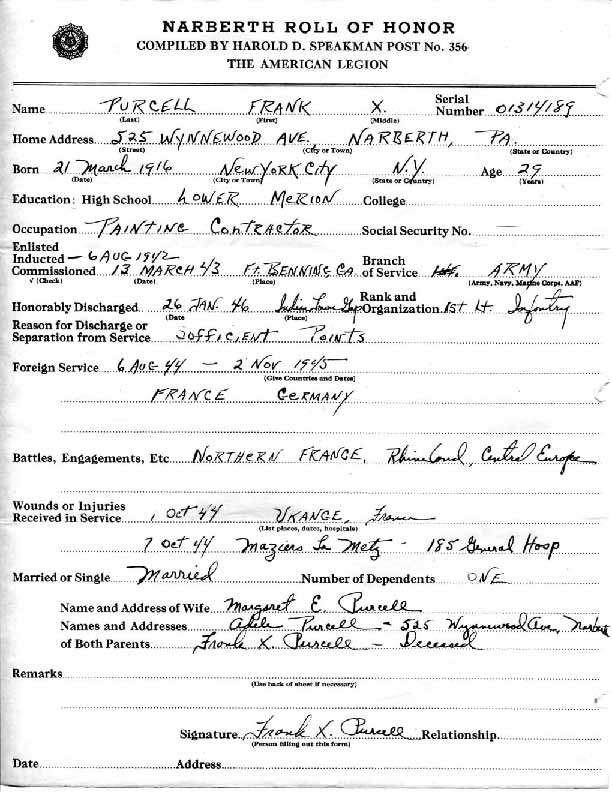 NARBERTH ROLL OF HONOR
COMPILED BY HAROLD D. SPEAKMAN POST No. 356
THE AMERICAN LEGION
Name PURCELL FRANK X. Serial Number 01314189
(Last) (First) (Middle)
Home Address 525 WYNNEWOOD AVE, NARBERTH, PA.
(Street) (City or Town) (State or Country)
Born 21 March 1916 New York City N.Y. Age 29
(Date) (City or Town) (State or Country) (Years)
Education: High School LOWER MERION College
Occupation PAINTING CONTRACTOR Social Security No. —
Enlisted
Inducted — 6 AUG 1942 Branch
Commissioned 13 MARCH 43 Ft. BENNING GA. of Service ARMY
√ (Check) (Date) (Place) (Army, Navy, Marine Corps, AAF)
Honorably Discharged 26 JAN. 46 Indian Town Gap Rank and Organization 1st Lt. Infantry
(Date (Place)
Reason for Discharge or
Separation from Service SUFFICIENT POINTS
Foreign Service 6 AUG 44 — 2 NOV 1945
(Give Countries and Dates)
FRANCE GERMANY
Battles, Engagements, Etc. NORTHERN FRANCE, Rhineland, Central Europe
Wounds or Injuries
Received in Service 1 OCT 44 UKANGE, France
(List places, dates, hospitals)
7 OCT 44 Maziers La Metz - 185 General Hosp
Married or Single Married Number of Dependents ONE
Name and Address of Wife Margaret E. Purcell
Names and Addresses Adele Purcell - 525 Wynnewood Ave, Narbert
of Both Parents Frank X. Purcell - Deceased
Remarks
(Use back of sheet if necessary)
Signature Frank X. Purcell Relationship
(Person filling out this form)
Date Address